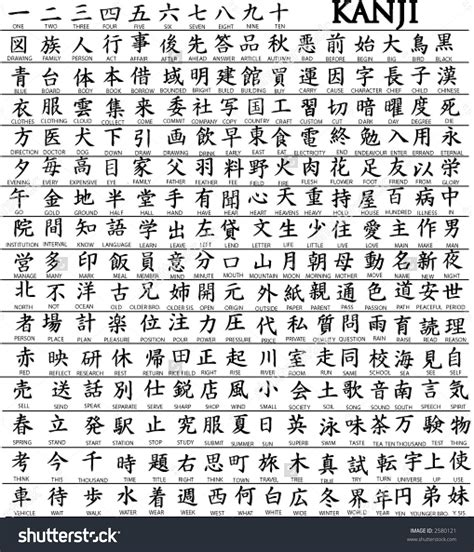 一 二 三 四 五 六 七 八 九 十 KANJI
ONE TWO THREE FOUR FIVE SIX SEVEN EIGHT NINE TEN
図 族 人 行 事 後 先 答 品 秋 悪 前 始 大 鳥 黒
DRAWING FAMILY PERSON ACT AFFAIR AFTER AHEAD ANSWER ARTICLE AUTUMN BAD BEFORE BEGIN BIG BIRD BLACK
青 台 体 本 借 域 明 建 館 買 運 因 字 長 子 漢
BLUE BOARD BODY BOOK BORROW BOUNDED BRIGHT BUILD BUILDING BUY CARRY CAUSE CHARACTER CHIEF CHILD CHINESE
衣 服 雲 集 来 委 社 写 国 工 習 切 暗 曜 度 死
CLOTHES CLOTHING CLOUD COLLECT COME COMMIT COMPANY COPY COUNTRY CRAFT CUSTOM CUT DARK DAY DEGREE DIE
方 医 犬 下 引 画 飲 早 東 食 電 終 勉 入 用 永
DIRECTION DOCTOR DOG DOWN DRAW DRAWING DRINK EARLY EAST EAT ELECTRICITY END ENDEAVOUR ENTER ERRAND ETERNAL
夕 毎 高 目 家 父 羽 料 野 火 肉 花 足 友 以 学
EVENING EVERY EXPENSIVE EYE FAMILY FATHER FEATHER FEE FIELD FIRE FLESH FLOWER FOOT FRIEND
行 金 地 半 堂 手 有 聞 心 天 重 屋 百 病 中
GO GOLD GROUND HALF HALL HAND HAVE HEAR HEART HEAVEN HEAVY HOUSE HUNDRED ILLNESS IN
院 間 知 語 学 出 左 貸 文 生 少 住 愛 主 作 男
INSTITUTION INTERVAL KNOW LANGUAGE LEARN LEAVE LEFT LEND LETTER LIFE LITTLE LIVE LOVE MAIN MAKE MAN
営 多 印 飯 員 意 分 口 山 月 朝 母 動 名 新 夜
MANAGE MANY MARK MEAL MEMBER MIND MINUTE MOUTH MOUNTAIN MOON MORNING MOTHER MOVE NAME NEW NIGHT
北 不 洋 古 兄 姉 開 元 外 紙 親 通 色 道 安 世
NORTH NOT OCEAN OLD OLDER BRO. OLDER SIS. OPEN ORIGIN OUTSIDE PAPER PARENT PASS PASSION PATH PEACEFUL PERIOD
者 場 計 楽 位 注 圧 力 代 私 質 問 雨 育 読 理
PERSON PLACE PLAN PLEASURE POSITION POUR PRESSURE POWER PRICE PRIVATE QUALITY QUESTION RAIN RAISE READ REASON
赤 映 研 休 帰 田 正 起 川 室 走 同 校 海 見 自
RED REFLECT RESEARCH REST RETURN RICE FIELD RIGHT RISE RIVER ROOM RUN SAME SCHOOL SEA SEE SELF
売 送 話 別 仕 鋭 店 風 小 会 土 歌 音 言 気
SELL SEND SPEAK SEPARATE SERVE SHARP SHOP WIND SMALL SOCIETY SOIL SONG SOUND SPEECH SPIRIT
春 立 発 駅 止 究 服 夏 日 英 泳 味 茶 万 験 物
SPRING STAND START STATION STOP STUDY SUMMER SUN SWIM TASTE TEA TEN THOUSAND TEST THING
考 今 千 時 題 右 思 町 旅 木 真 試 転 宇 上 使
THINK THIS THOUSAND TIME TITLE RIGHT THINK TOWN TRAVEL TREE TRUE TRY TURN UNIVERSE UP USE
車 待 歩 水 着 週 西 何 白 窓 冬 女 界 年 円 弟 妹
VEHICLE WAIT WALK WATER WEAR WEEK WEST WHAT WHITE WINDOW WINTER WOMAN WORLD YEAR YEN
shutterstock
IMAGE ID: 2580121
www.shutterstock.com